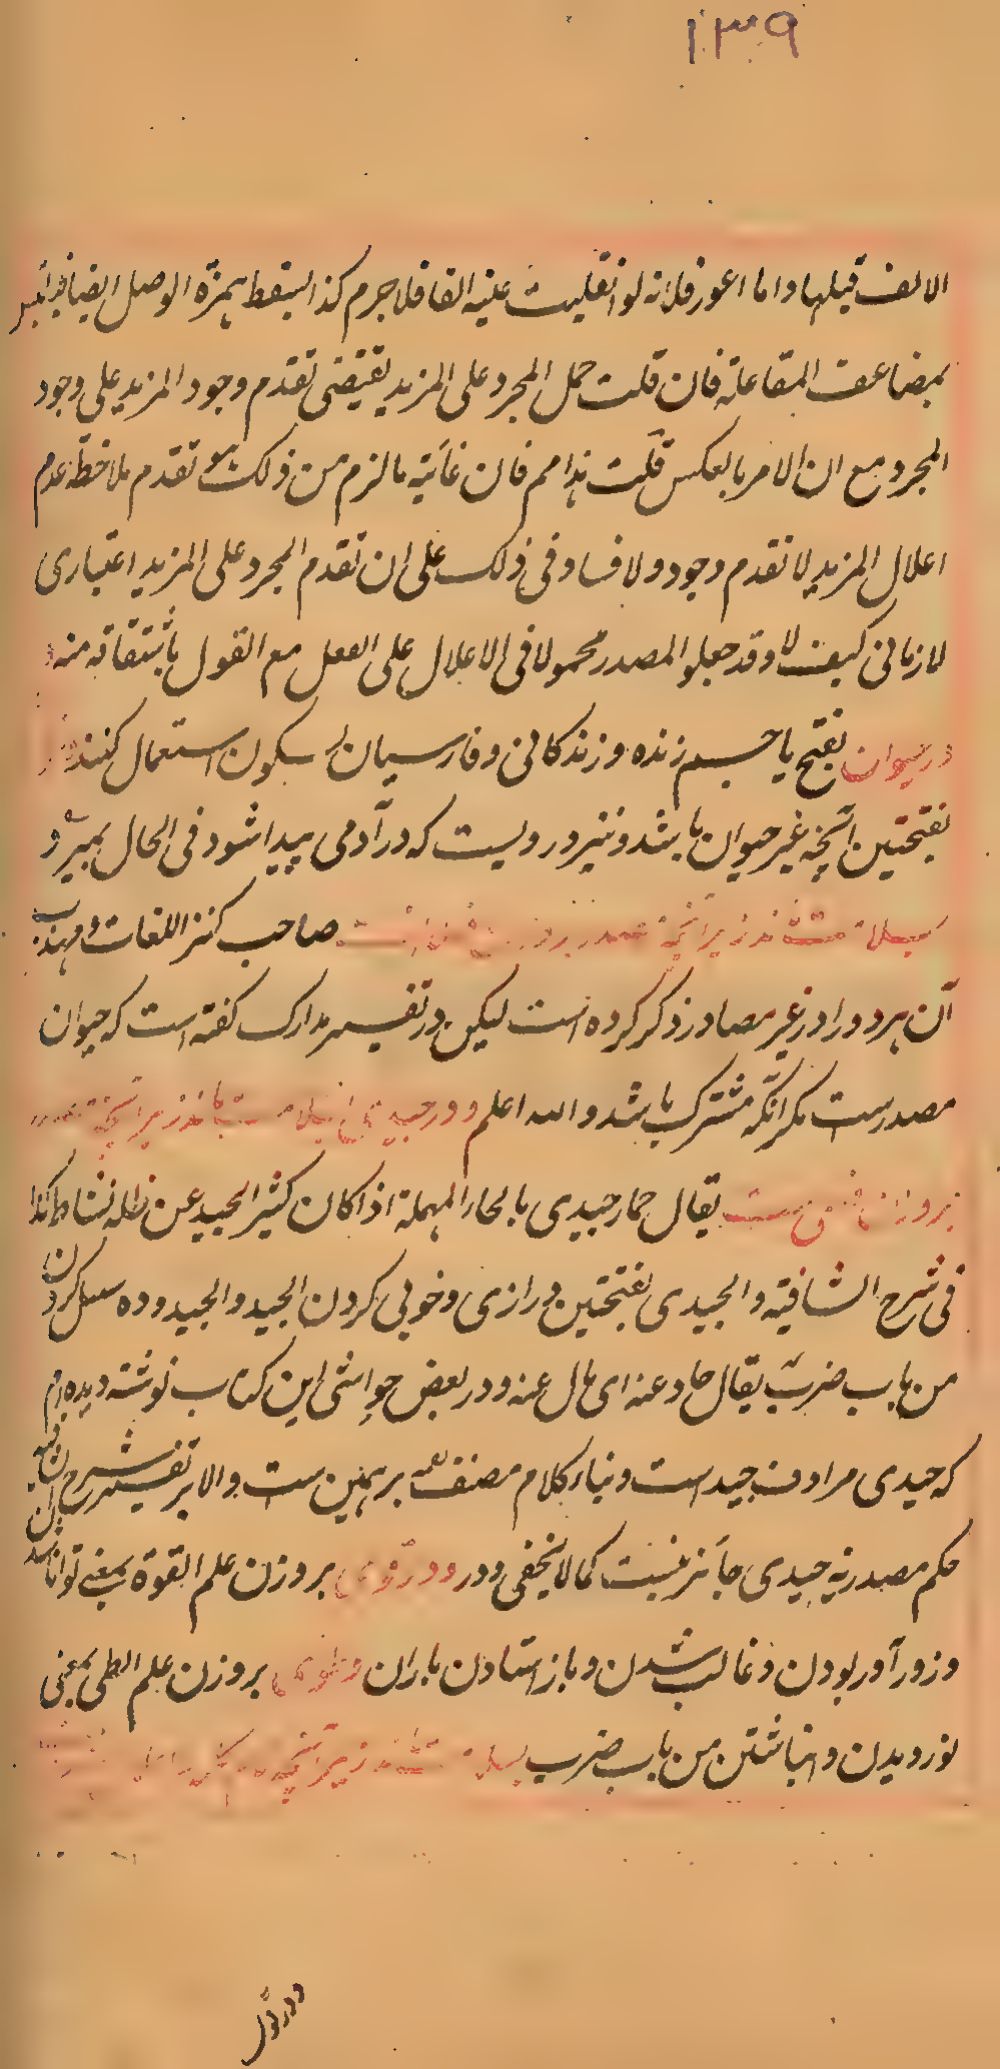 ۱۳۹
الالف قبلها واما اعور فلانه لو انقلبت عینه الفا فلاجرم کذا یسقط همزة الوصل ایضا فیلتبس
بمضاعف المفاعلة فان قلت حمل المجرد علی المزید یقتضی تقدم وجود المزید علی وجود
المجرد مع ان الامر بالعکس قلت هذا مم فان غائیة ما لزم من ذلک هو تقدم ملاحظة عدم
اعلال المزید لا تقدم وجوده ولا فساد فی ذلک علی ان تقدم المجرد علی المزید اعتباری
لا زمانی کیف لا وقد جعلوا المصدر محمولا فی الاعلال علی الفعل مع القول باشتقاقه منه
در حیوان بفتح یا جسم زنده و زندکانی و فارسیان بسکون استعمال کنند
بفتحتین آنچه غیر حیوان باشد و نیز در ویست که در آدمی پیدا شود فی الحال بمیرد و
صاحب کنز اللغات و مهذب
آن هر دو را در غیر مصادر ذکر کرده است لیکن در تفسیر مدارک کفته است که حیوان
مصدرست مکر آنکه مشترک باشد والله اعلم و در حیدی
یقال حمار حیدی بالحاء المهملة اذا کان کثیر الحید عن ظله نشاطا کذا
فی شرح الشافیة والحیدی بفتحتین درازی و خوبی کردن الحید والحیدودة میل کردن
من باب ضرب یقال حاد عنه ای مال عنه و در بعض حواشی این کتاب نوشته دیده ام
که حیدی مرادف حیدست و بناء کلام مصنف بر همین ست والا بر تفسیر شرح
حکم مصدریة حیدی جائز نیست کما لا یخفی و در و در قوی بر وزن علم القوة بمعنی توانا شدن
و زورآور بودن و غالب شدن و باز استادن باران و طوی بر وزن علم الطی بمعنی
نوردیدن و انباشتن من باب ضرب